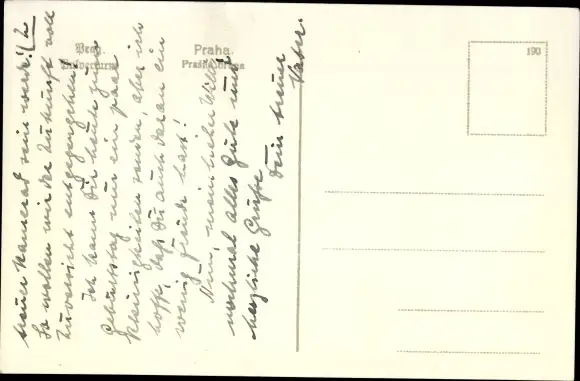 Prag.
Pulverturm
Praha.
Prašná brána
190
treuer Kamerad sein werde! (2
So wollen wir der Zukunft voll
Zuversicht entgegengehen!
Ich kann Dir heute zum
Geburtstag nur ein paar
Kleinigkeiten senden, aber ich
hoffe, daß Du auch daran ein
wenig Freude hast!
Nun, mein lieber Willi,
nochmal alles Gute und
herzliche Grüße
Dein treuer
Vater.